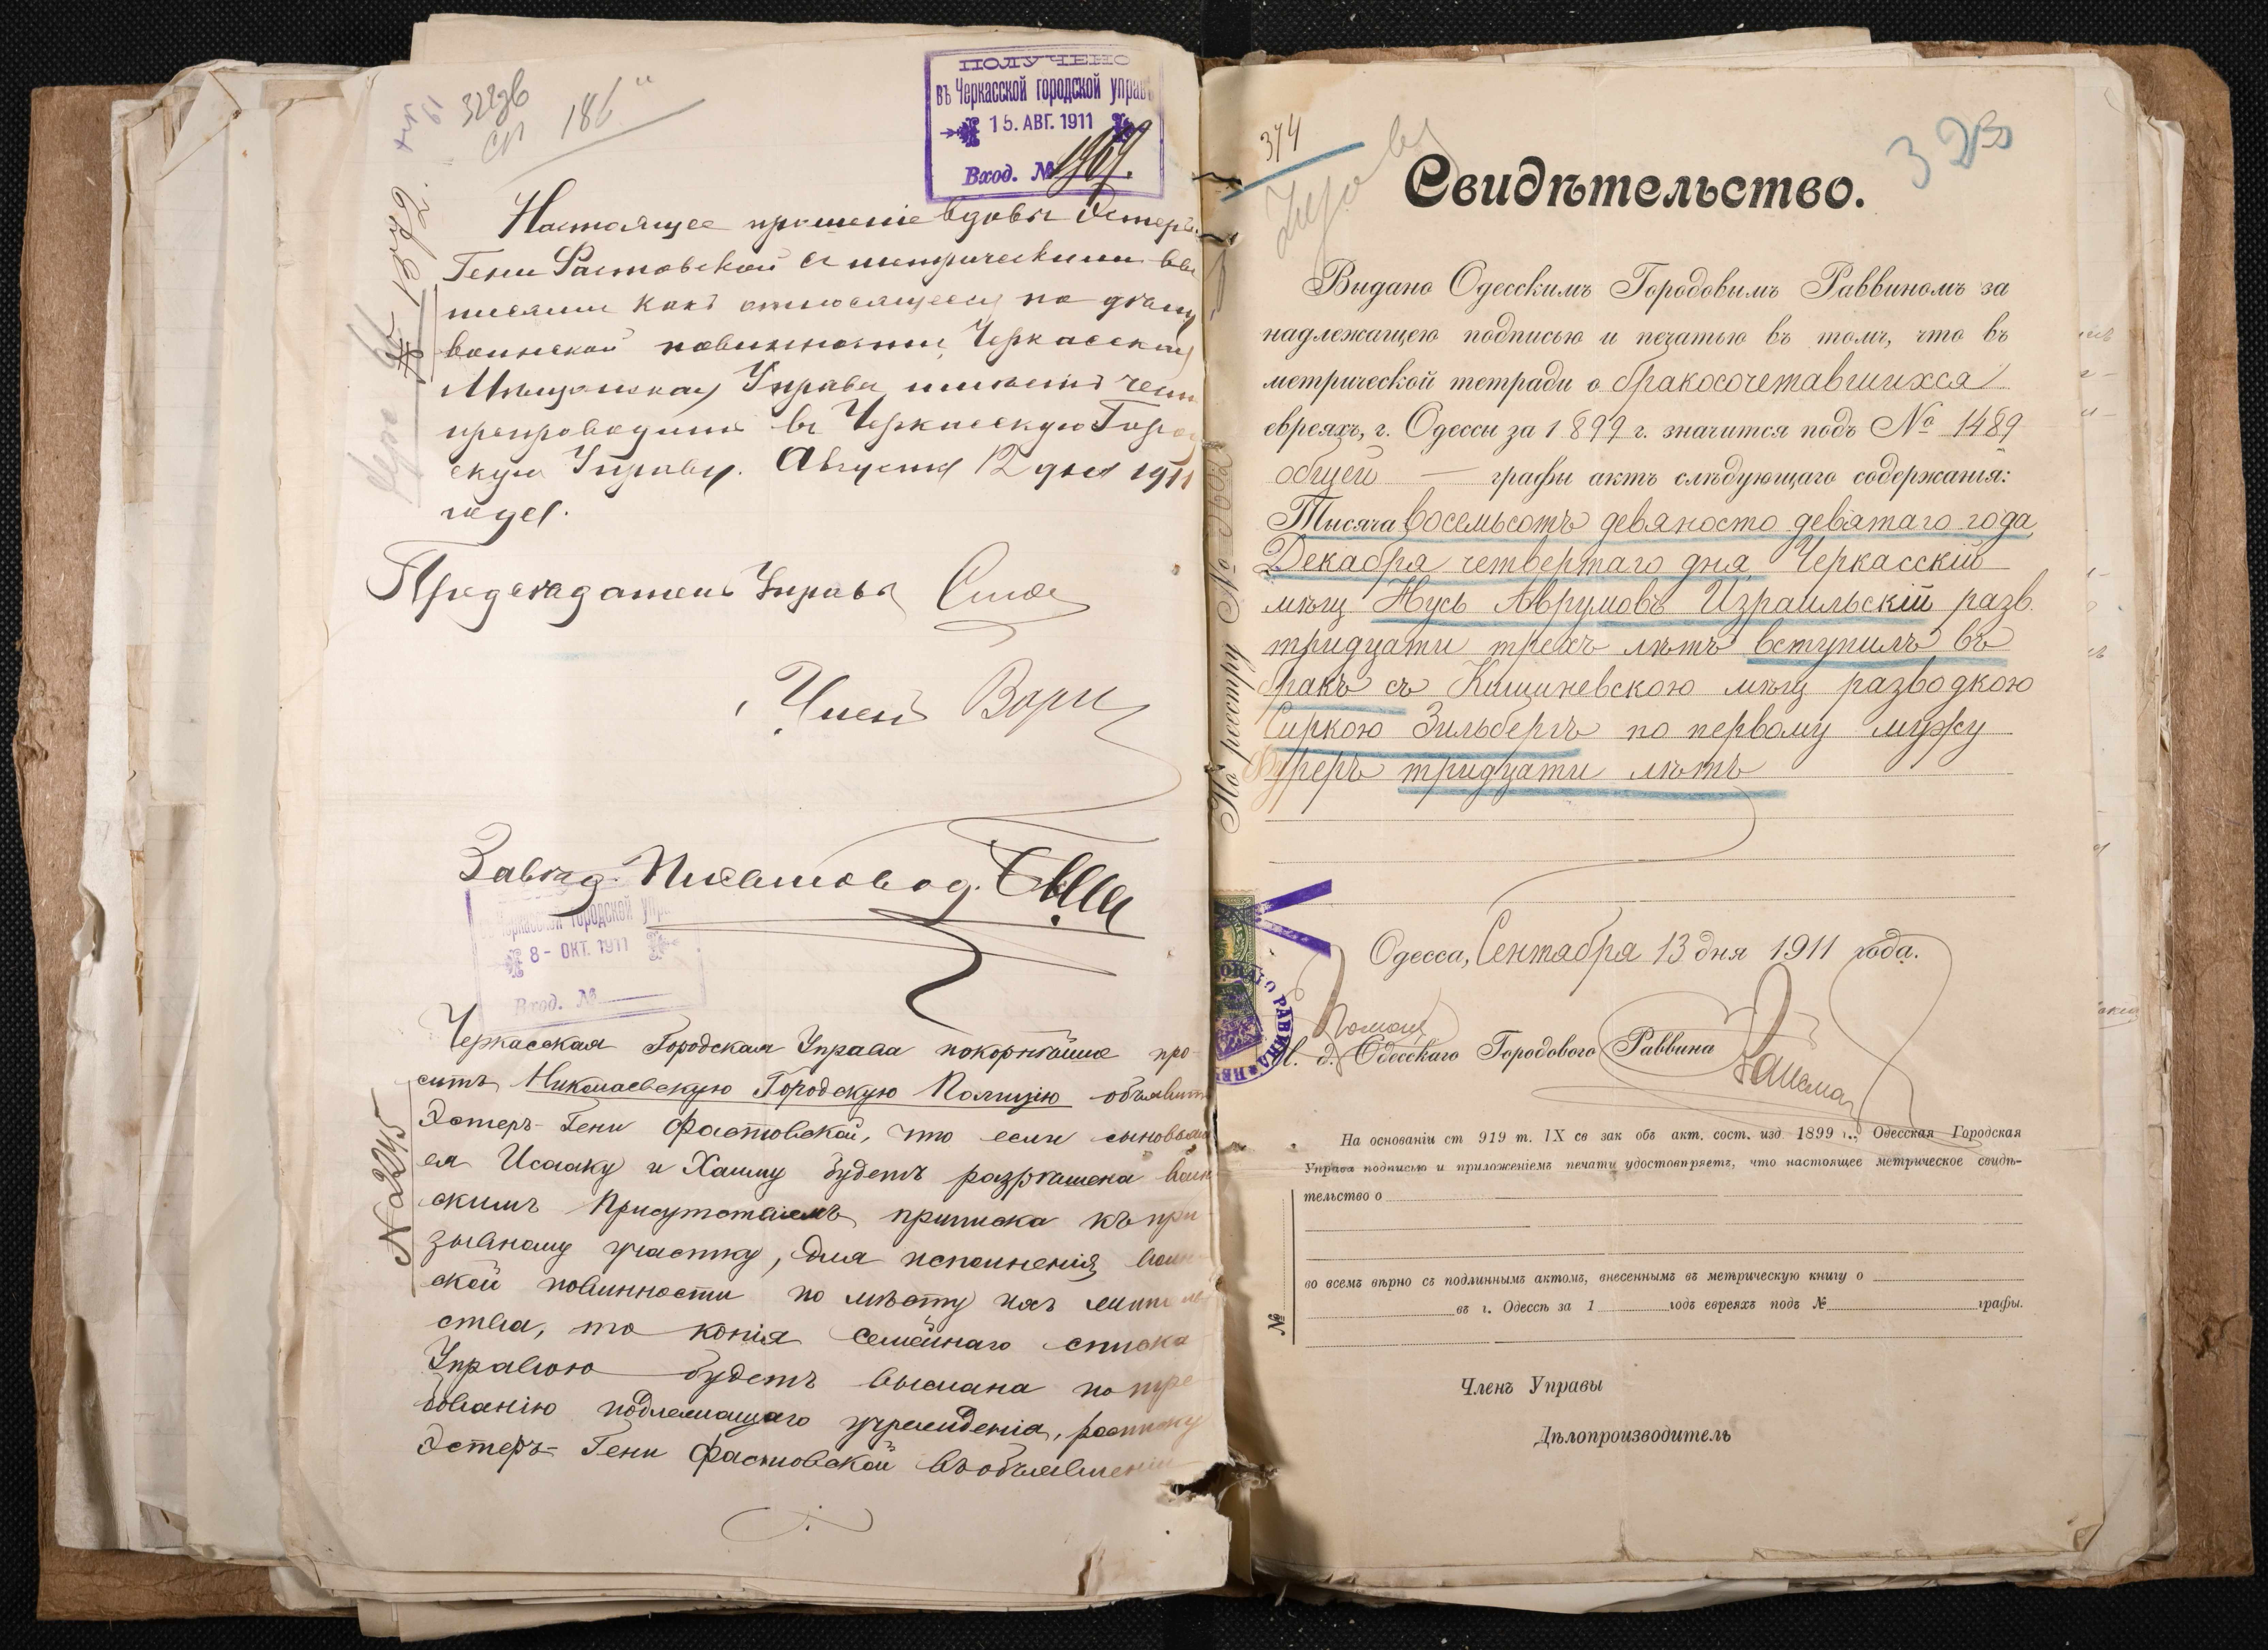 322дв
186
ПОЛУЧЕНО
въ Черкасской городской управ
15. АВГ. 1911
Вход. № 1969.
Настоящее прошеніе вдовы Эстеръ
Гени Фастовской съ метрическими вы
писями какъ относящееся по дѣлу
воинской повинности, Черкасская
Мѣщанская Управа имѣетъ честь
препроводить въ Черкасскую Город
скую Управу. Августа 12 дня 1911
года.
Предсѣдатель Управы
Членъ
Завѣд. Письмовод.
Черкасской городской упра
8 - ОКТ. 1911
Вход. №
Черкасская Городская Управа покорнѣйше про-
ситъ Николаевскую Городскую Полицію объявить
Эстеръ-Гени Фастовской, что если сыновьямъ
ея Исааку и Хаиму будетъ разрѣшена воин
скимъ Присутствіемъ приписка къ при
зывному участку, для исполненія воин
ской повинности по мѣсту ихъ житель
ства, то копія семейнаго списка
Управою будетъ выслана по тре
бованію подлежащаго учрежденія, росписку
Эстеръ-Гени Фастовской въ объявленіи
№ 2245
374
Свидѣтельство.
Выдано Одесскимъ Городовымъ Раввиномъ за
надлежащею подписью и печатью въ томъ, что въ
метрической тетради о бракосочетавшихся
евреяхъ, г. Одессы за 1899 г. значится подъ № 1489
общей — графы актъ слѣдующаго содержанія:
Тысяча восемьсотъ девяносто девятаго года,
Декабря четвертаго дня, Черкасскій
мѣщ Нусь Аврумовъ Израильскій разв.
тридцати трехъ лѣтъ вступилъ въ
бракъ съ Кишиневскою мѣщ разводкою
Сиркою Зильбергъ по первому мужу
Фуреръ тридцати лѣтъ
По реестру №
Одесса, Сентября 13 дня 1911 года.
Помощ
И. д. Одесскаго Городового Раввина
На основаніи ст 919 т. IX св зак объ акт. сост. изд 1899 г., Одесская Городская
Управа подписью и приложеніемъ печати удостовѣряетъ, что настоящее метрическое свидѣ-
тельство о
во всемъ вѣрно съ подлиннымъ актомъ, внесеннымъ въ метрическую книгу о
въ г. Одессѣ за 1 годъ евреяхъ подъ № графы.
№
Членъ Управы
Дѣлопроизводитель